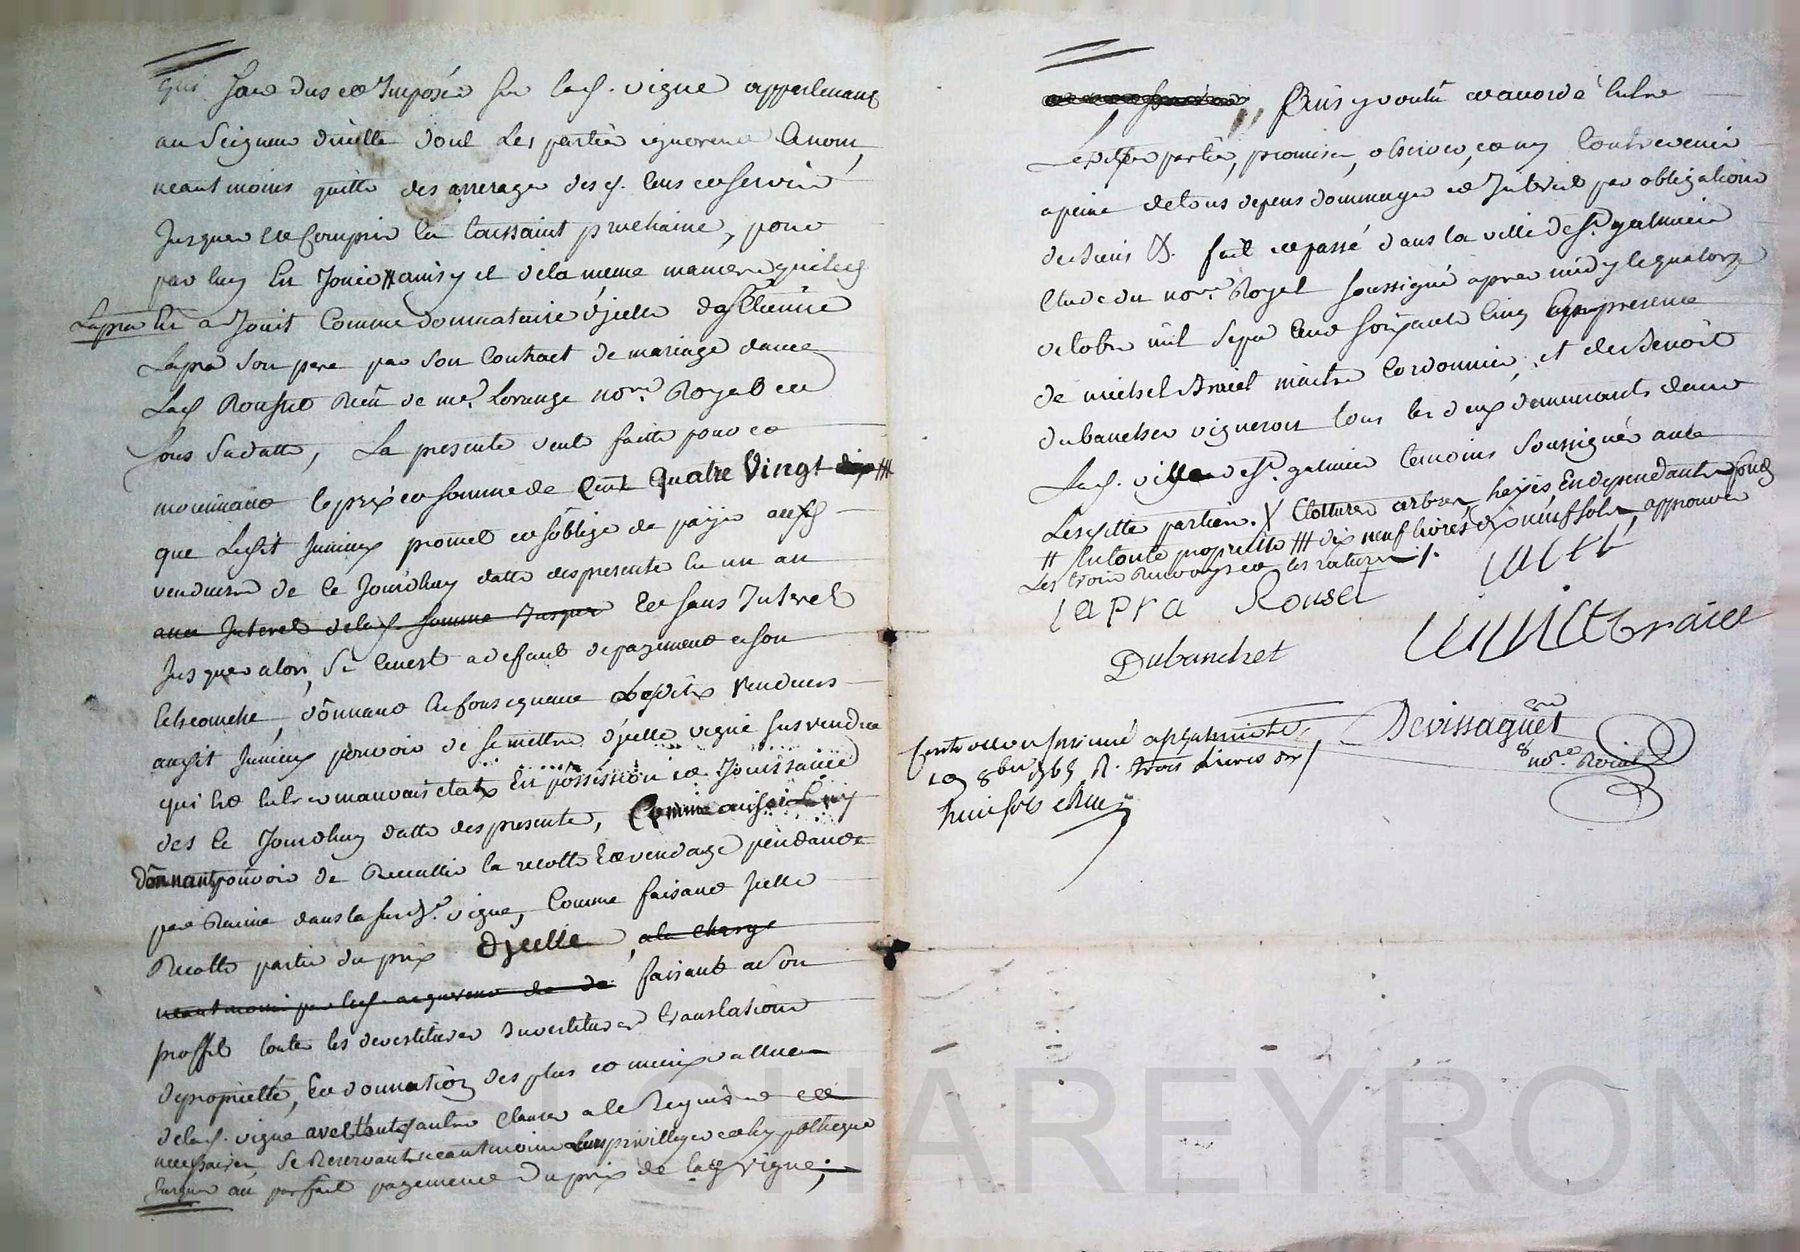 qui sont dus et Imposés sur lad. vigne appartenant
au Seigneur d'icelle dont les parties ignorent le nom,
neantmoins quitte des arrerages desd. cens et servis
Jusques et compris la toussaint prochaine, pour
par luy En Jouir # ainsy et de la meme maniere que led.
Lapra En a Jouit comme donnataire d'jcelle d'Estienne
Lapra son pere par son contract de mariage avec
Lad. Rousset Reçu de me. Lorange nore. Royal
sous sa datte, La presente vente faitte pour et
moiennant le prix et somme de Cent quatre vingt dix ###
que Ledit Jumieux promet et s'oblige de payer auxd.
vendeurs de ce Jourdhuy datte des presentes en un an
avec Interet de lad. somme Jusques et sans Interet
Jusques alors, de ce nest a deffaut de payement a son
echeance, donnant En consequence lesdits vendeurs
audit Jumieux pouvoir de se mettre d'jcelle vigne sus vendue
qui est en tres mauvais etat En possession et Jouissance
des ce Jourdhuy datte des presentes, Comme aussi luy
donnant pouvoir de Recueillir la recolte et vendange pendante
par Racine dans la susd. vigne, Comme faisant jcelle
Recolte partie du prix d'jcelle, a la charge
neantmoins par led. acquereur de faisant a son
proffit toutes les devestitures Investitures translation
de proprietté, et donnation des plus et mieux vallues
de lad. vigne avec touts autres clauses a ce Requises et
necessaires, se Reservant neantmoins leurs privilleges et hypotheque
Jusques au parfait payement du prix de lad. vigne;
Ainsy voulu et accordé entre
Lesdittes parties, promis, observer, et ny contrevenir
a peine de tous depens dommages et Interets par obligation
de biens &. fait et passé dans la ville de St. galmier
Etude du nore. Royal soussigné apres midy le quatorze
octobre mil sept cent soixante cinq En presence
de michel maitre cordonnier, et de benoit
dubanchet vigneron tous les deux demeurants dans
Lad. ville de St. galmier temoins soussignés avec
Lesdittes parties. X Clotures arbres hayes En dependants fonds
# En toute proprietté ### dix neuf livres dix neuf sols, approuvé
Les trois Renvoys et les ratures /.
lapra Rousset
Dubanchet
Devissaguet
nore. Roial
Controllé et insinué a St galmier le
19 8bre 1765 R. trois livres dix
huit sols
CHAREYRON